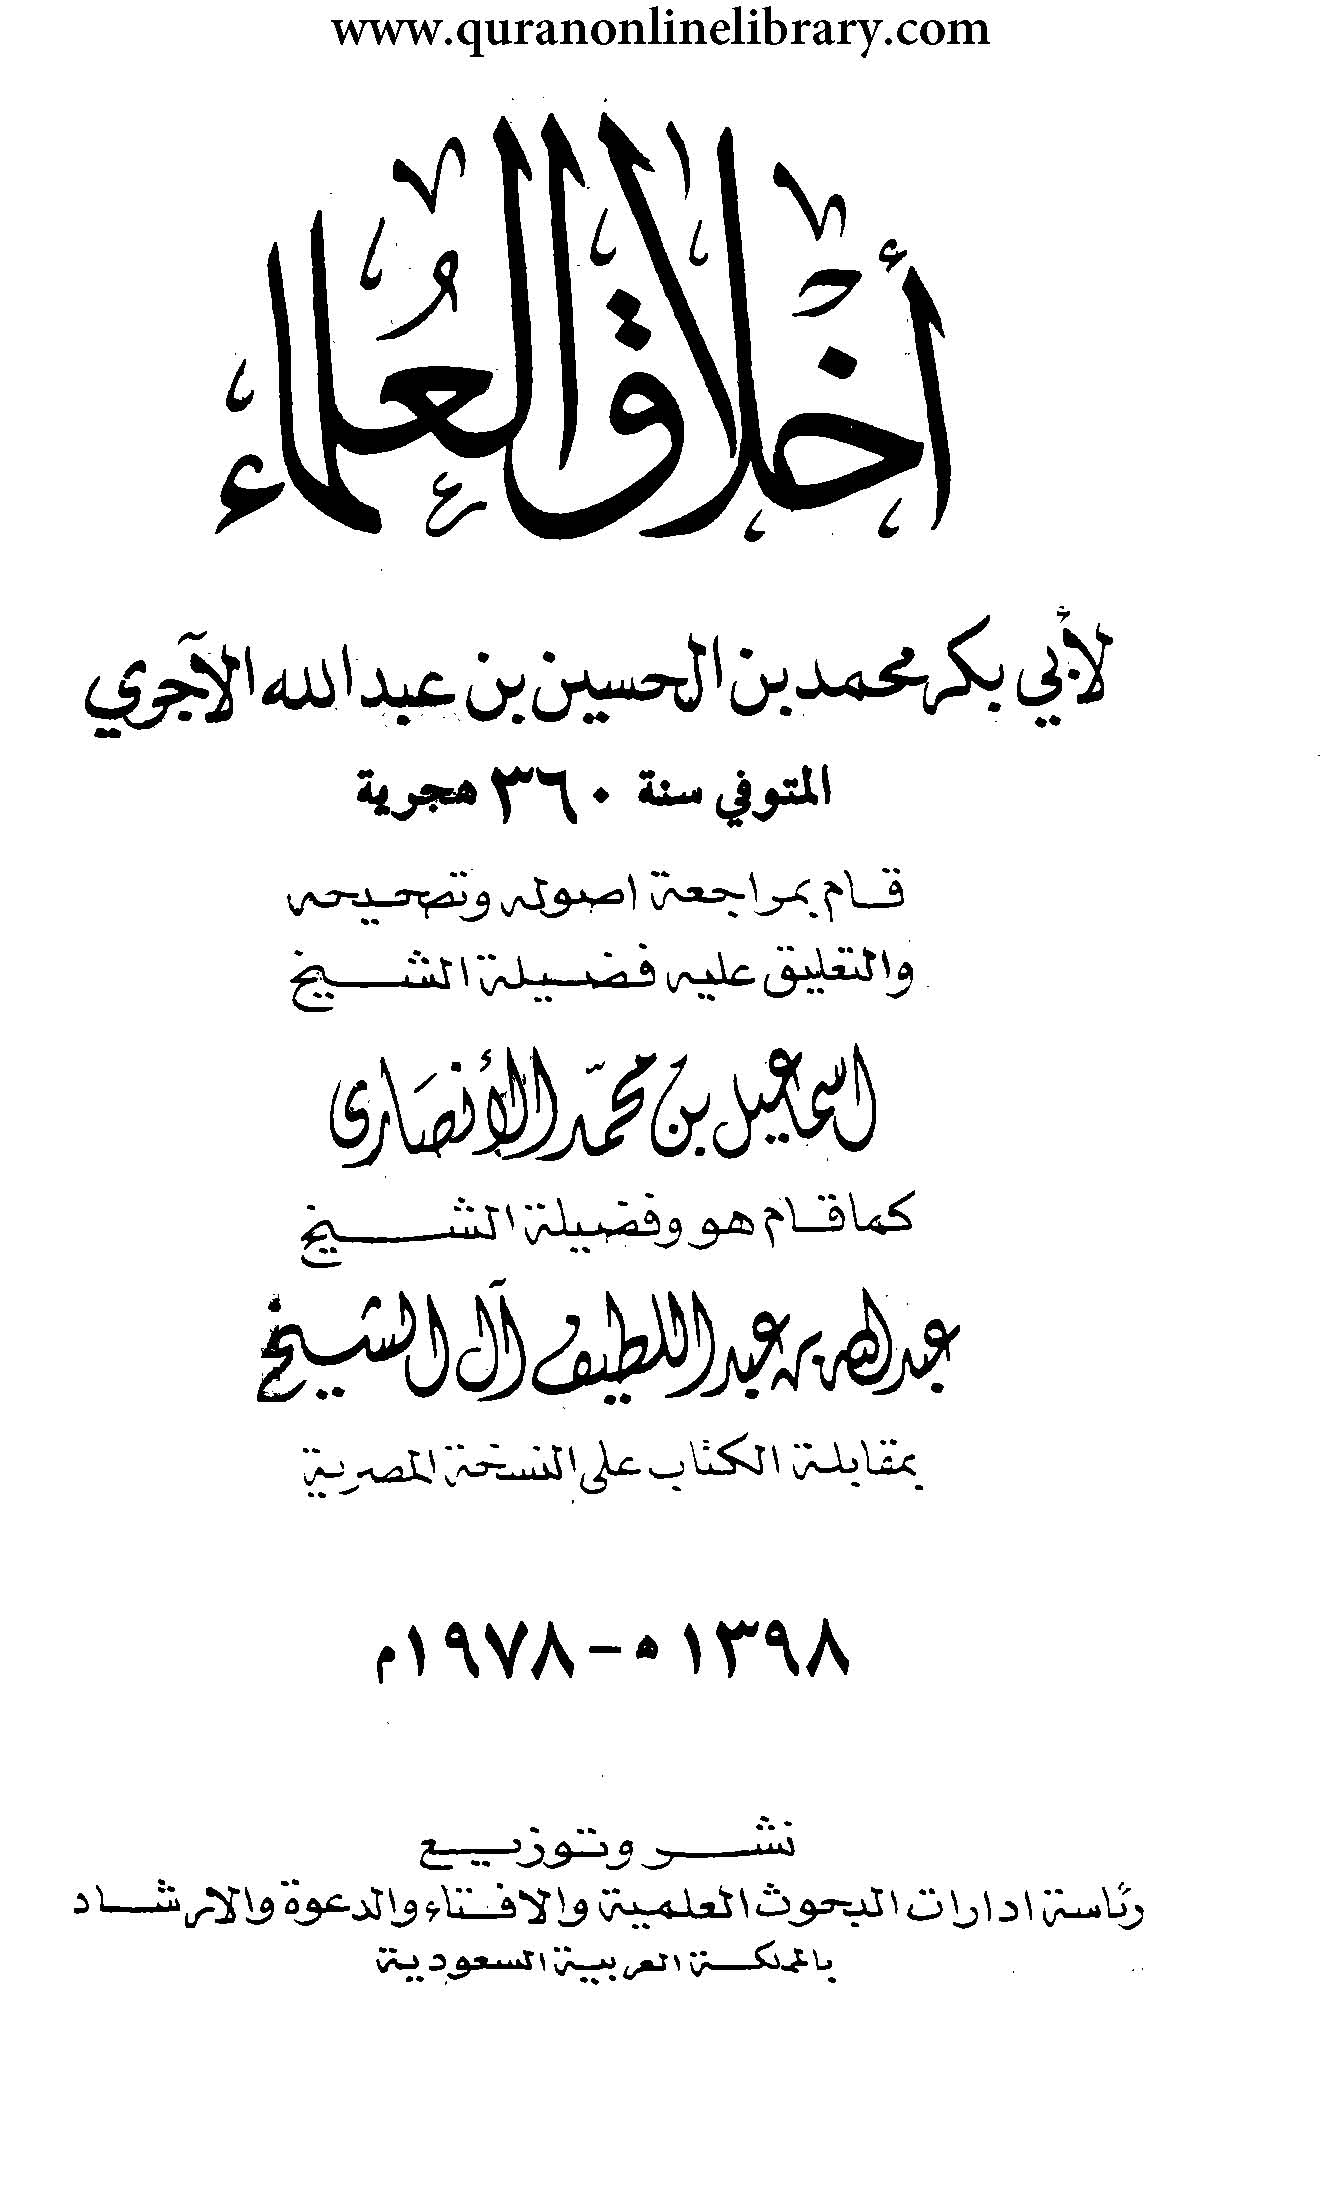 www.quranonlinelibrary.com
أخلاق العُلماء
لأبي بكر محمد بن الحسين بن عبد الله الآجري
المتوفي سنة ٣٦٠ هجرية
قام بمراجعة اصوله وتصحيحه
والتعليق عليه فضيلة الشيخ
اسماعيل بن محمّد الأنصارى
كما قام هو وفضيلة الشيخ
عبد الله بن عبد اللطيف آل الشيخ
بمقابلة الكتاب على النسخة المصرية
١٣٩٨ ه - ١٩٧٨ م
نشر وتوزيع
رئاسة ادارات البحوث العلمية والافتاء والدعوة والارشاد
بالمملكة العربية السعودية